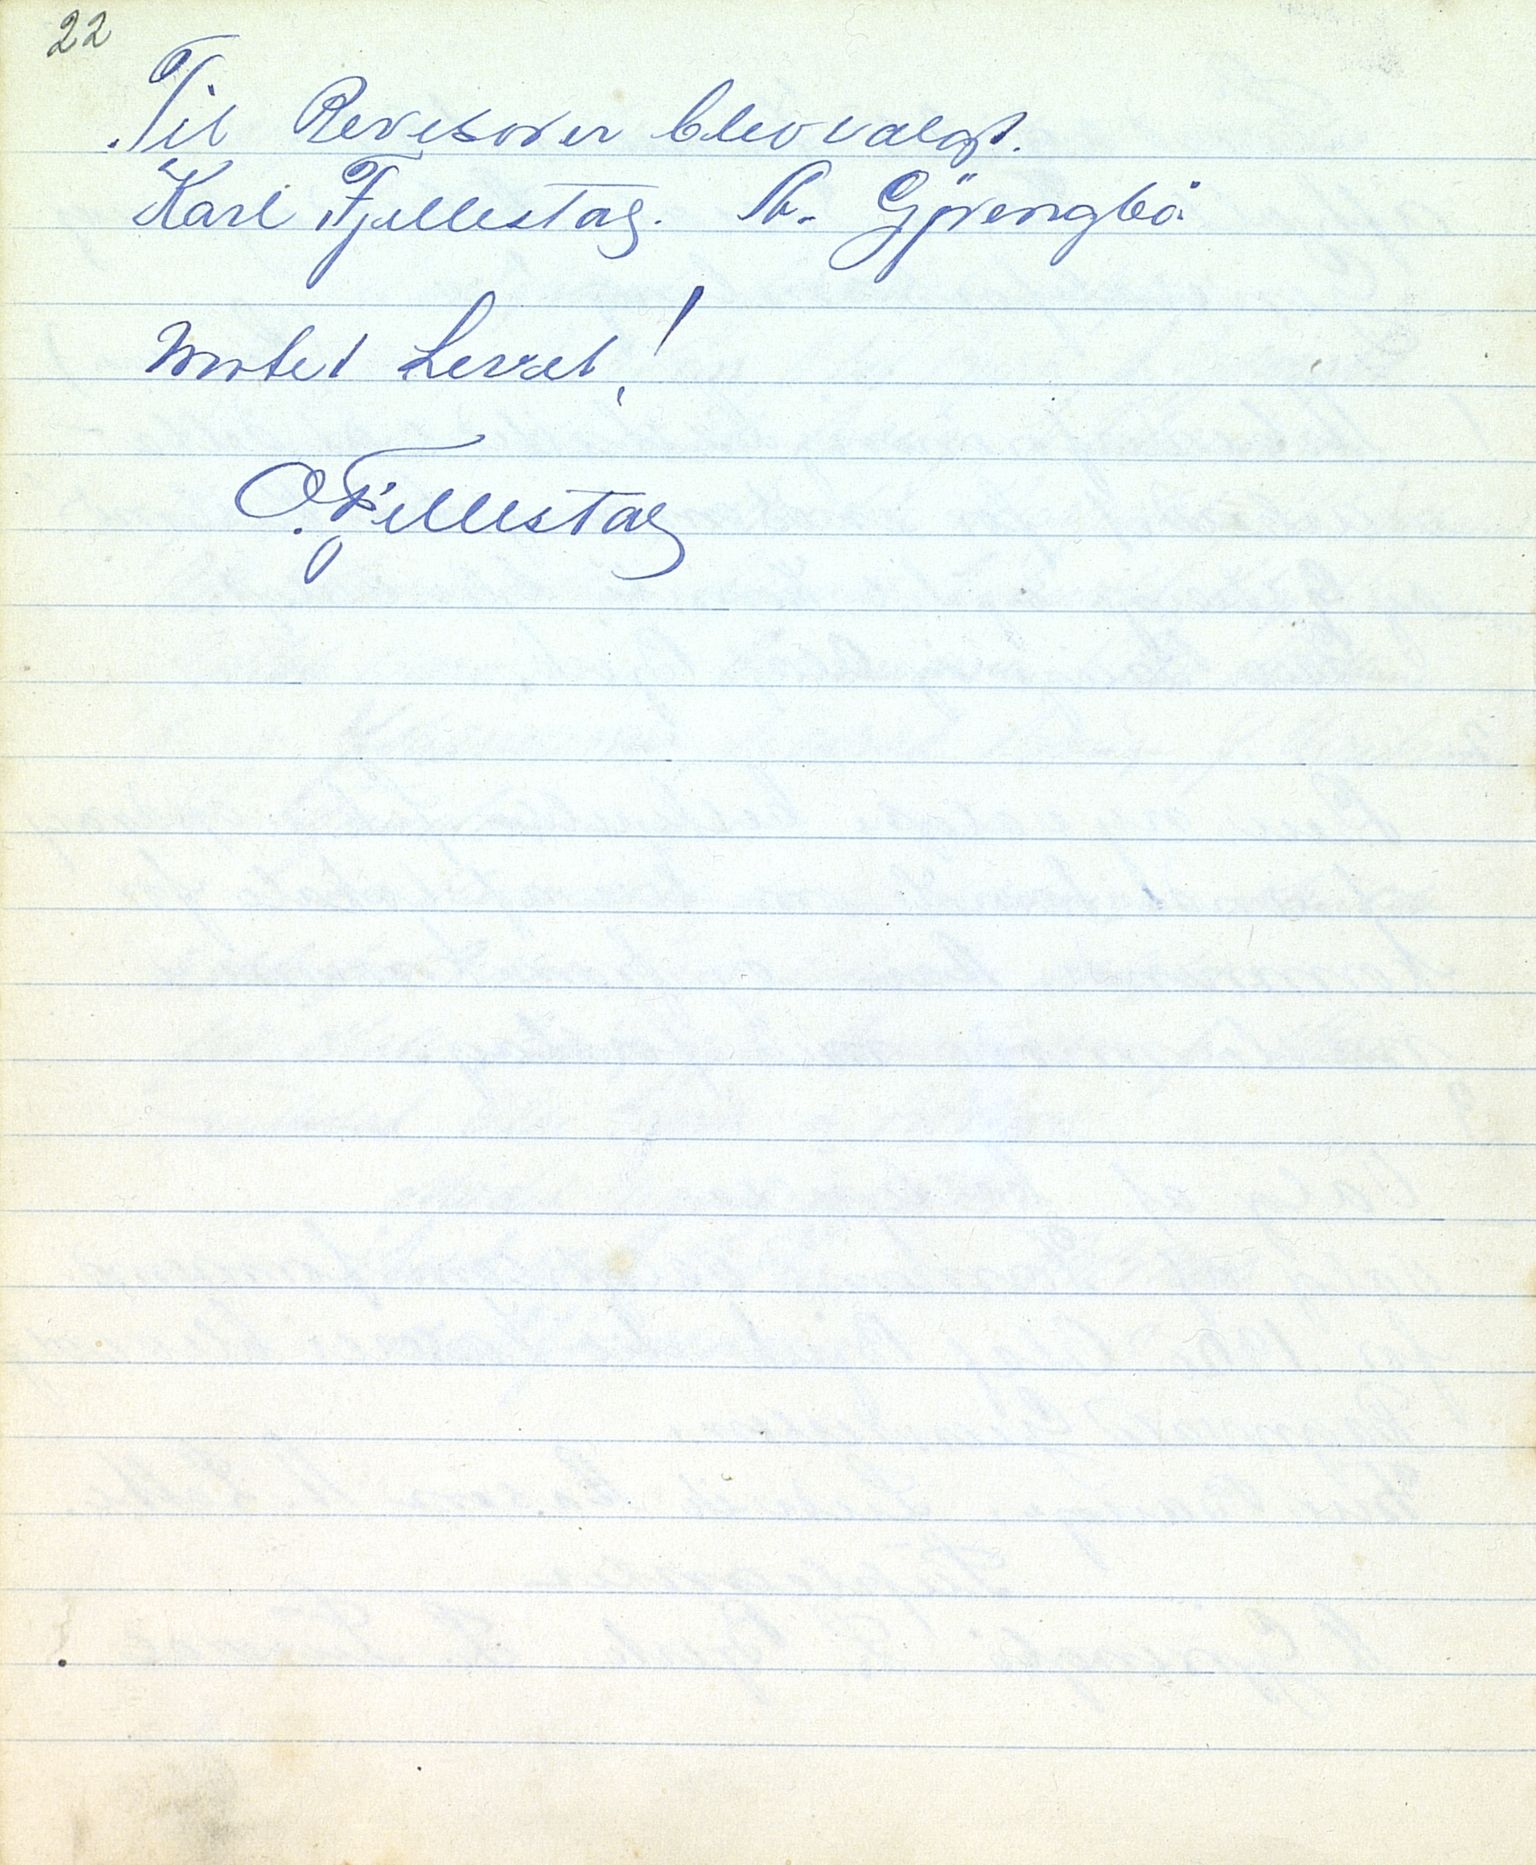 22
Til Revisorer blev valgt.
Karl Fjellestag. N. Gjörengbö
Møtet Hevet!
O. Fjellestag